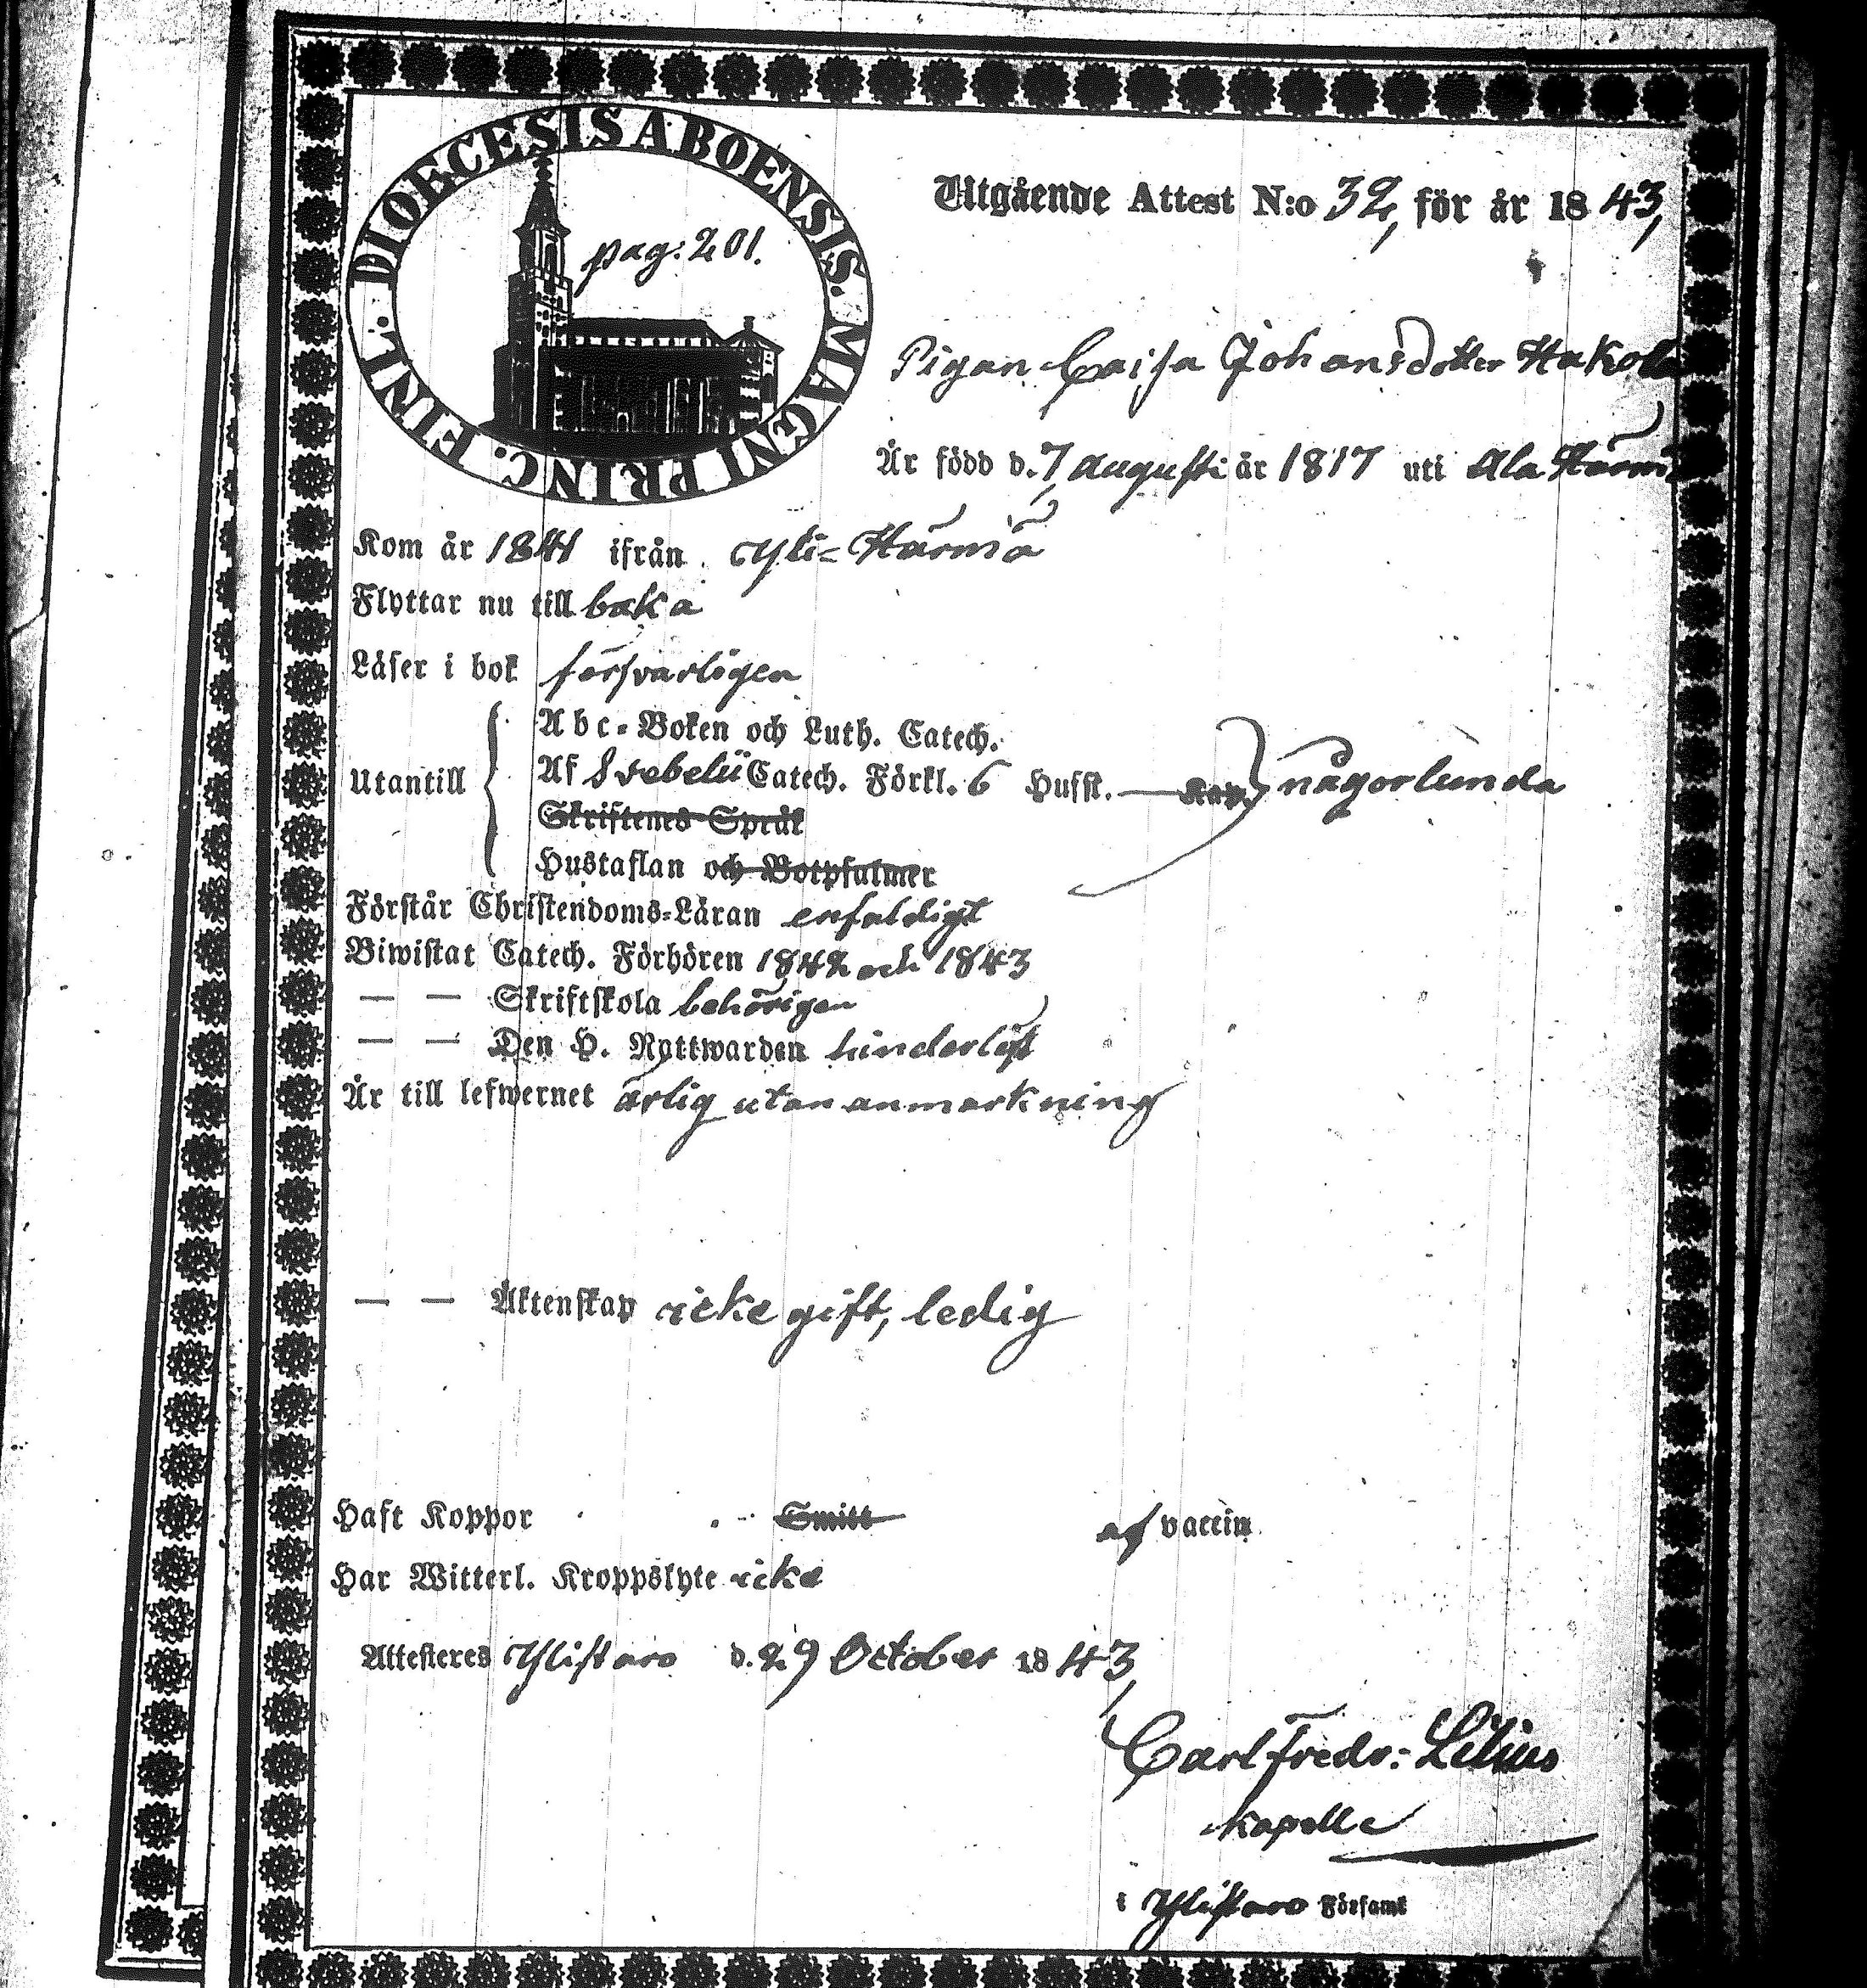 DIOECESIS ABOENSIS. MAGNI PRINC. FINL.
pag: 201.
Utgående Attest N:o 32, för år 1843,
Pigan Caisa Johansdotter Hakola
Är född d. 7 augusti år 1817 uti Ala Härmä
Kom år 1841 ifrån Yli=Härmä
Flyttar nu till baka
Läser i bok försvarligen
Utantill
Abc-Boken och Luth. Catech.
Af Svebelii Catech. Förkl. 6 Hufst. — Kap. någorlunda
Skriftenes Språk
Hustaflan och Botpsalmer
Förstår Christendoms-Läran enfaldigt
Biwistat Catech. Förhören 1842 och 1843
— — Skriftskola behörigen
— — Den H. Nattwarden hinderlöst
Är till lefwernet ärlig utan anmärkning
— — Äktenskap icke gift, ledig
Haft Koppor Smitt af vaccin
Har Witterl. Kroppslyte icke
Attesteras Ylistaro d. 29 October 1843,
Carl Fredr: Lilius
Kapell
i Ylistaro Församl